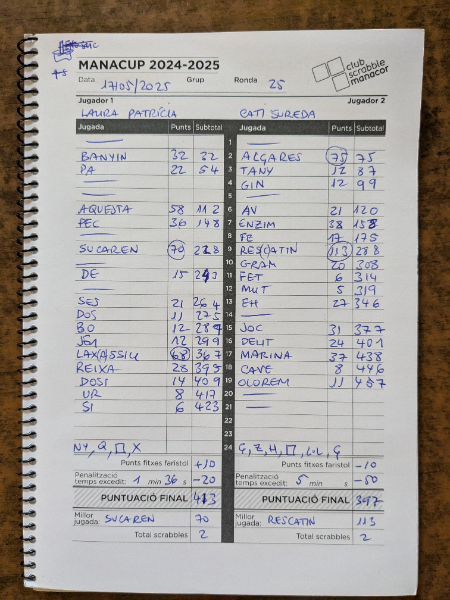 MANACUP 2024-2025
club scrabble manacor
Data 17/05/2025 Grup Ronda 25
Jugador 1 Jugador 2
LAURA PATRÍCIA CATI SUREDA
Jugada Punts Subtotal Jugada Punts Subtotal
1
BANYIN 32 32 2 ALGARES 75 75
PA 22 54 3 TANY 12 87
4 GIN 12 99
5
AQUESTA 58 112 6 AV 21 120
PEC 36 148 7 ENZIM 38 158
8 FE 17 175
SUCAREN 70 218 9 RES(C)ATIN 113 288
10 GRAM 20 308
DE 15 11 FET 6 314
12 MUT 5 319
SES 21 264 13 EH 27 346
DOS 11 275 14
BO 12 287 15 JOC 31 377
12 299 16 DELIT 24 401
LAX(A)SSIU 68 367 17 MARINA 37 438
REIXA 28 395 18 CAVE 8 446
DOSI 14 409 19 OLOREM 11 457
UR 8 417 20
SI 6 423 21
22
23
24
NY, Q, X
Punts fitxes faristol +10 Punts fitxes faristol -10
Penalització temps excedit: 1 min 36 s -20 Penalització temps excedit: 5 min s -50
PUNTUACIÓ FINAL 413 PUNTUACIÓ FINAL 397
Millor jugada: SUCAREN 70 Millor jugada: RESCATIN 113
Total scrabbles 2 Total scrabbles 2